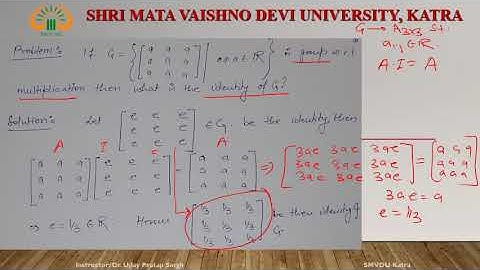 SHRI MATA VAISHNO DEVI UNIVERSITY, KATRA
Problem:- If G = { [ a a a
a a a
a a a ] : 0 ≠ a ∈ R } is group w.r.t
multiplication then what is the identity of G?
G → A3x3 s.t.
aij ∈ R
A·I = A
Solution:- Let [ e e e
e e e
e e e ] ∈ G be the identity, then
A I A
[ a a a
a a a
a a a ] [ e e e
e e e
e e e ] = [ a a a
a a a
a a a ] ⇒ [ 3ae 3ae 3ae
3ae 3ae 3ae
3ae 3ae 3ae ] = [ a a a
a a a
a a a ]
3ae = a
e = 1/3
⇒ e = 1/3 ∈ R Hence [ 1/3 1/3 1/3
1/3 1/3 1/3
1/3 1/3 1/3 ] be the identity of
G
Instructor:Dr. Uday Pratap Singh
SMVDU Katra